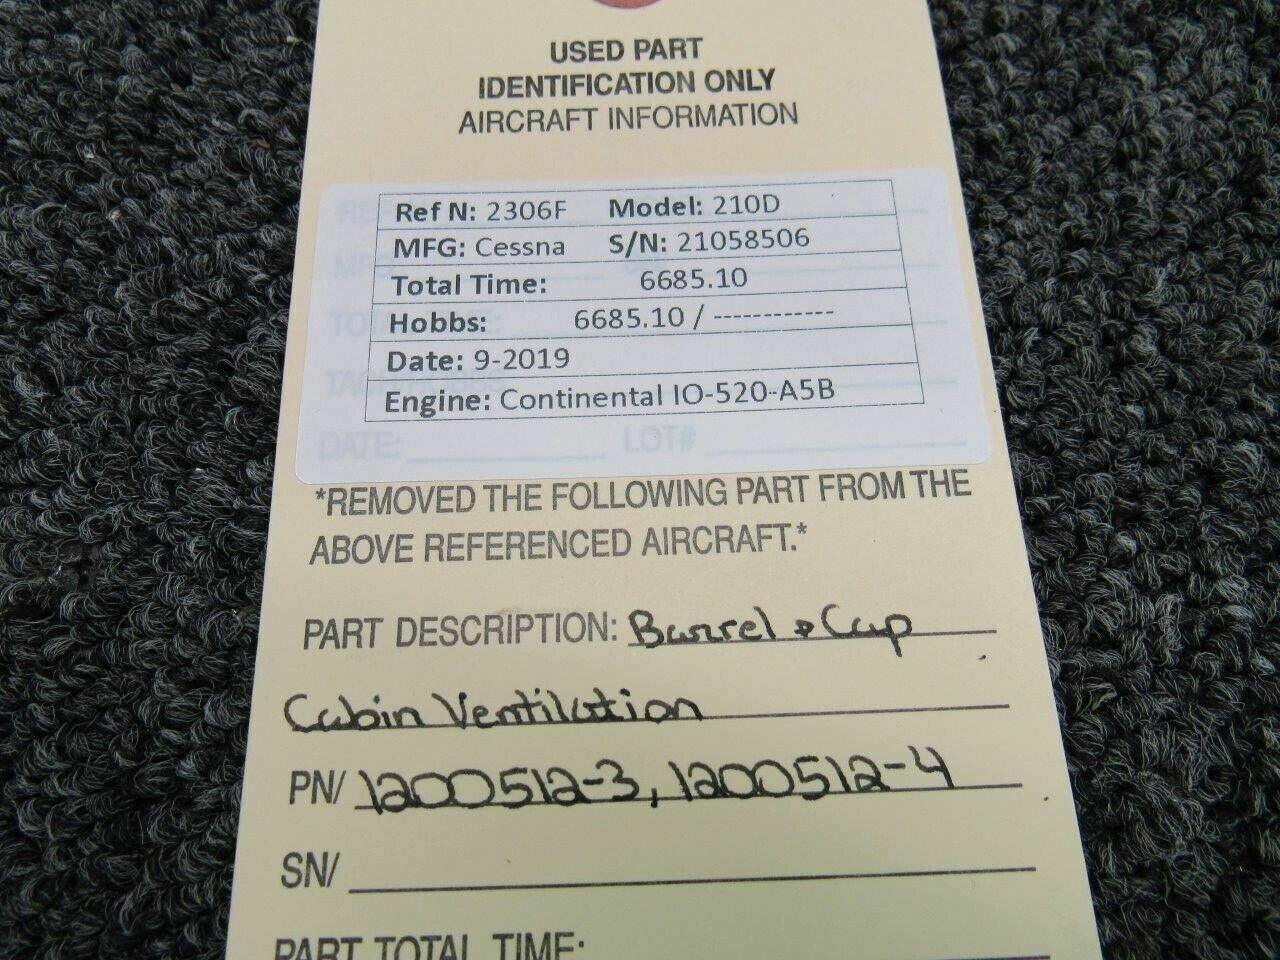 USED PART
IDENTIFICATION ONLY
AIRCRAFT INFORMATION
Ref N: 2306F Model: 210D
MFG: Cessna S/N: 21058506
Total Time: 6685.10
Hobbs: 6685.10 / ------------
Date: 9-2019
Engine: Continental IO-520-A5B
DATE: LOT#
*REMOVED THE FOLLOWING PART FROM THE
ABOVE REFERENCED AIRCRAFT.*
PART DESCRIPTION: Barrel & Cap
Cabin Ventilation
PN/ 1200512-3, 1200512-4
SN/
PART TOTAL TIME: